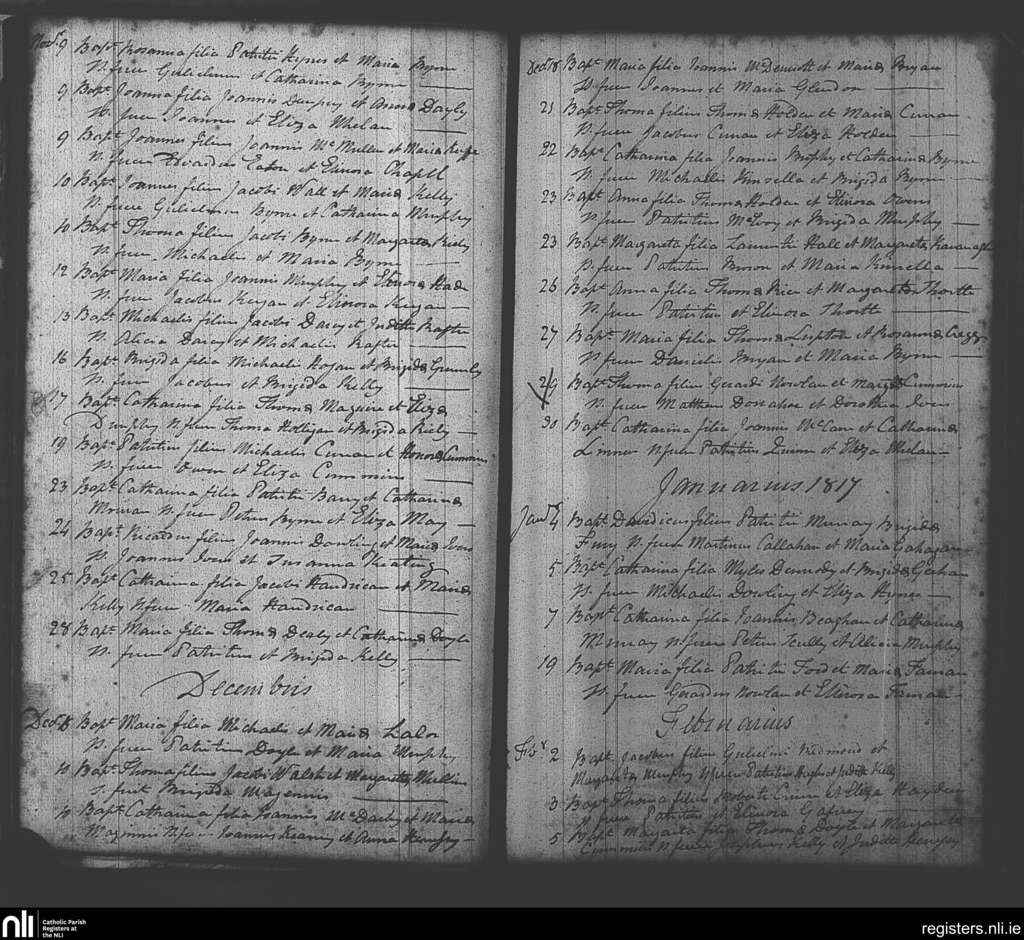 Novr 9 Bapt Rosanna filia Patritii Hynes et Maria Byrne
P. fuere Gulielmus et Catharina Byrne
9 Bapt Joanna filia Joannis Dempsy et Anna Dayly
P. fuere Joannes et Eliza Whelan
9 Bapt Joannes filius Joannis McMullen et Maria
P. fuere Eaton et Elinora Chapell
10 Bapt Joannes filius Jacobi Wall et Maria Kelly
P. fuere Gulielmus Byrne et Catharina Murphy
10 Bapt Thoma filius Jacobi Byrne et Margareta Kiely
P. fuere Michaelis et Maria Byrne
12 Bapt Maria filia Joannis Murphy et Elenora
P. fuere Jacobus Keegan et Elenora Keegan
13 Bapt Michaelis filius Jacobi Darcy et Judith Rafter
P. Alicia Darcy et Michaelis Rafter
16 Bapt Brigida filia Michaelis Hogan et Brigida
P. fuere Jacobus et Brigida Kelly
17 Bapt Catharina filia Thoma Maguire et Eliza
Dumphy P. fuere Thoma Holligan et Brigida Kiely
19 Bapt Patritius filius Michaelis Curran et Honora Cummins
P. fuere Owen et Eliza Cummins
23 Bapt Catharina filia Patritii Barry et Catharina
P. fuere Petrus Byrne et Eliza May
24 Bapt Ricardus filius Joannis Dowling et Maria Ivers
P. Joannes Ivers et Susanna Keating
25 Bapt Catharina filia Jacobi Handrican et Maria
Kelly P. fuere Maria Handrican
28 Bapt Maria filia Thoma Dealy et Catharina Doyle
P. fuere Patritius et Brigida Kelly
Decembris
Decr 8 Bapt Maria filia Michaelis et Maria Lalor
P. fuere Patritius Doyle et Maria Murphy
10 Bapt Thoma filius Jacobi Walsh et Margareta Mullins
S. fuit Brigida Magennis
10 Bapt Catharina filia Joannis McDarby et Maria
Magennis P. fuere Joannes Kearny et Anna
Decr 8 Bapt Maria filia Joannis McDermott et Maria Bryan
P. fuere Joannes et Maria Glendon
21 Bapt Thoma filius Thoma Holden et Maria Curran
P. fuere Jacobus Curran et Eliza Holden
22 Bapt Catharina filia Joannis Brophy et Catharina Byrne
P. fuere Michaelis Kinsella et Brigida Byrne
23 Bapt Anna filia Thoma Holden et Elinora Owens
P. fuere Patritius McEvoy et Brigida Murphy
23 Bapt Margareta filia Laurentii Hall et Margareta Kavanagh
P. fuere Patritius Brown et Maria Kinsella
26 Bapt Anna filia Thoma Rice et Margareta Thortle
P. fuere Patritius et Elinora Thortle
27 Bapt Maria filia Thoma Lupton et Rosanna
P. fuere Danielis Bryan et Maria Byrne
29 Bapt Thoma filius Gerardi Nowlan et Margt
P. fuere Matthew Donahoe et Dorothea Ivers
30 Bapt Catharina filia Joannis McCann et Catharina
P. fuere Patritius et Eliza Whelan
Januarius 1817
Janr 4 Bapt Davidicus filius Patritii Murray Brigida
Fury P. fuere Martinus Callahan et Maria Gahagan
5 Bapt Catharina filia Myles Dennedy et Brigida Graham
P. fuere Michaelis Dowling et Eliza
7 Bapt Catharina filia Joannis Beaghan et Catharina
Murray P. fuere Petrus Scully et Alicia Murphy
19 Bapt Maria filia Patritii Ford et Maria Farnan
P. fuere Gerardus Nowlan et Elinora Farnan
Februarius
Febr 2 Bapt Jacobus filius Gulielmi Redmond et
Margareta Murphy P. fuere Patritius Hughes et Judith Kelly
3 Bapt Thoma filius Roberti Curran et Eliza Hayden
P. fuere Patritius et Elinora
5 Bapt Margareta filia Thoma Doyle et Margareta
Cummins P. fuere Josephus Kelly et Judith
nli Catholic Parish
Registers at
the NLI
registers.nli.ie